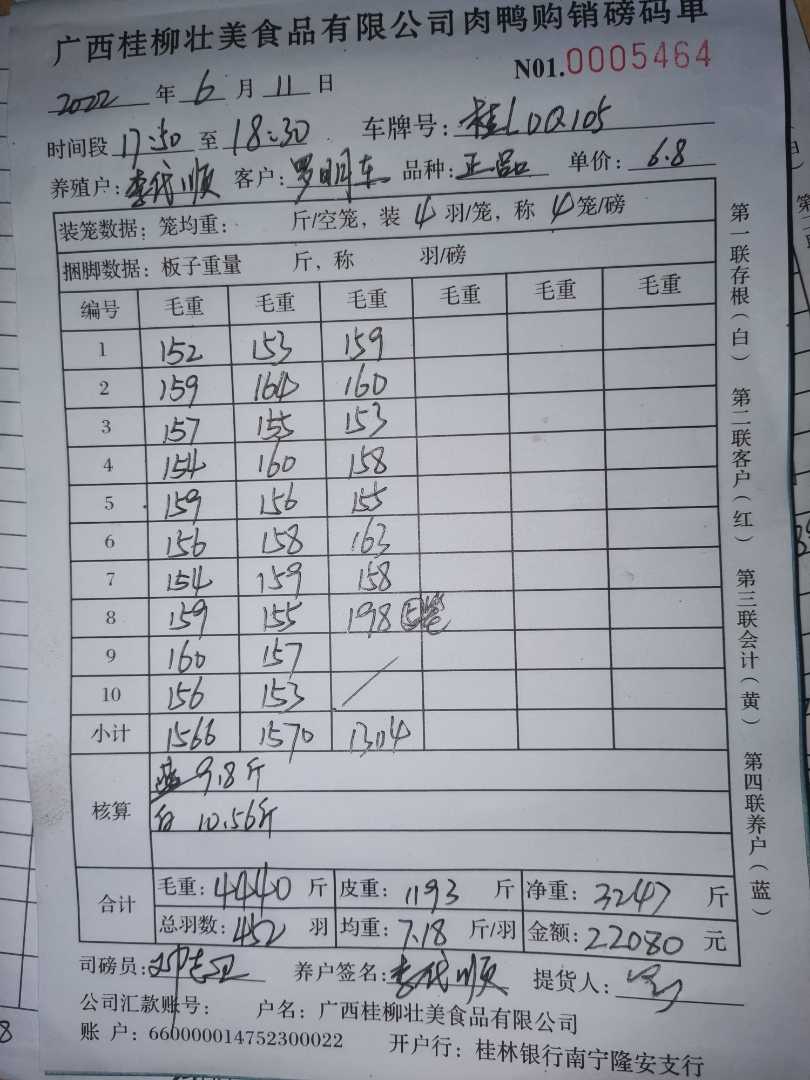 广西桂柳壮美食品有限公司肉鸭购销磅码单
2022 年 6 月 11 日 N01.0005464
时间段 17:50 至 18:30 车牌号: 桂LDQ105
养殖户: 李代顺 客户: 罗明车 品种: 正品 单价: 6.8
装笼数据: 笼均重: 斤/空笼, 装 4 羽/笼, 称 4 笼/磅
捆脚数据: 板子重量 斤, 称 羽/磅
编号 毛重 毛重 毛重 毛重 毛重 毛重
1 152 153 159
2 159 164 160
3 157 155 153
4 154 160 158
5 159 156 155
6 156 158 163
7 154 159 158
8 159 155 198 5笼
9 160 157
10 156 153
小计 1566 1570 1304
核算 9.8斤
白 10.56斤
合计 毛重: 4440 斤 皮重: 1193 斤 净重: 3247 斤
总羽数: 452 羽 均重: 7.18 斤/羽 金额: 22080 元
司磅员: 养户签名: 李代顺 提货人:
公司汇款账号: 户名: 广西桂柳壮美食品有限公司
账 户: 660000014752300022 开户行: 桂林银行南宁隆安支行
第一联存根(白) 第二联客户(红) 第三联会计(黄) 第四联养户(蓝)